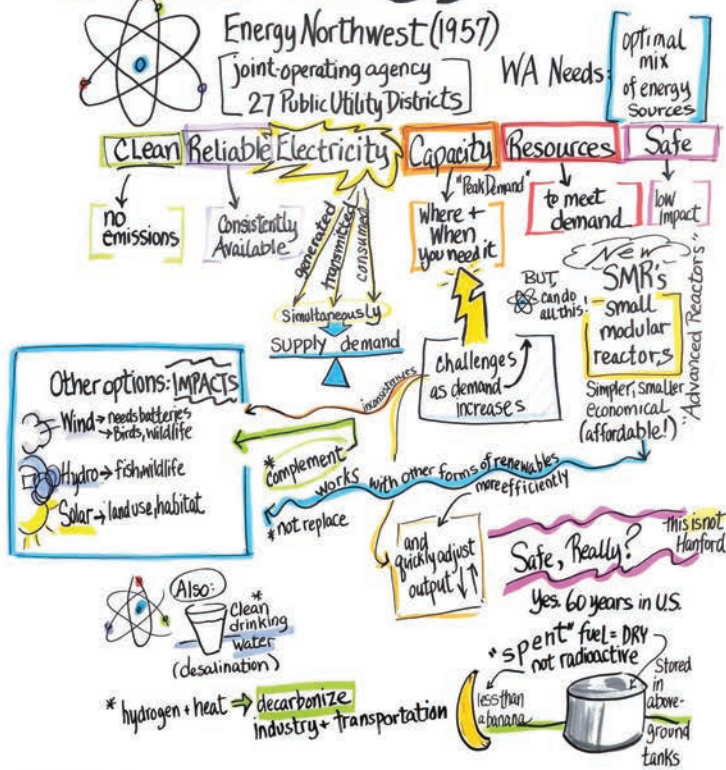 Energy Northwest (1957)
joint-operating agency
27 Public Utility Districts
WA Needs:
optimal
mix
of energy
Sources
Clean
Reliable
Electricity
Capacity
Resources
Safe
no
emissions
Consistently
Available
generated
transmitted
consumed
Simultaneously
supply demand
"Peak Demand"
Where +
When
you need it
to meet
demand
low
impact
New
SMR's
small
modular
reactors
"Advanced Reactors"
Simpler, smaller
economical
(affordable!)
BUT,
can do
all this!
challenges
as demand
increases
inconsistencies
Other options: IMPACTS
Wind → needs batteries
→ Birds, wildlife
Hydro → fish wildlife
Solar → land use, habitat
* complement
works with other forms of renewables
more efficiently
* not replace
and
quickly adjust
output ↓↑
Safe, Really?
this is not
Hanford
Yes. 60 years in U.S.
Also:
* Clean
drinking
water
(desalination)
"spent" fuel = DRY
not radioactive
less than
a banana
Stored
in
above-
ground
tanks
* hydrogen + heat ⇒ decarbonize
industry + transportation